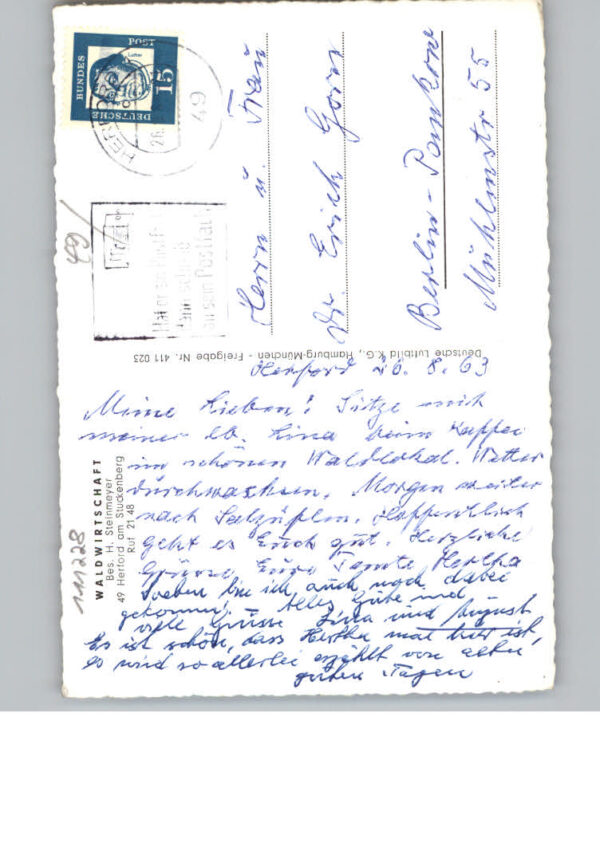 DEUTSCHE
BUNDES
POST
15
Luther
HERFORD
49
Hat er ein Postfach
Dann schreib
an sein Postfach
49/
Herrn u. Frau
Dr. Erich
Berlin-Pankow
Mühlenstr 55
Deutsche Luftbild K.G., Hamburg-München - Freigabe Nr. 411 023
WALDWIRTSCHAFT
Bes. H. Steinmeyer
49 Herford am Stuckenberg
Ruf 21 48
111228
Herford 26. 8. 63
Meine Lieben! Sitze mit
meiner lb. Lina beim Kaffee
im schönen Waldlokal. Wetter
durchwachsen. Morgen weiter
nach Salzuflen. Hoffentlich
geht es Euch gut. Herzliche
Grüsse Eure Tante Hertha
Soeben bin ich auch noch dabei
gekommen. Alles Gute und
viele Grüsse Lina und August
Es ist schön, dass Hertha mal hier ist,
es wird so allerlei erzählt von alten
guten Tagen